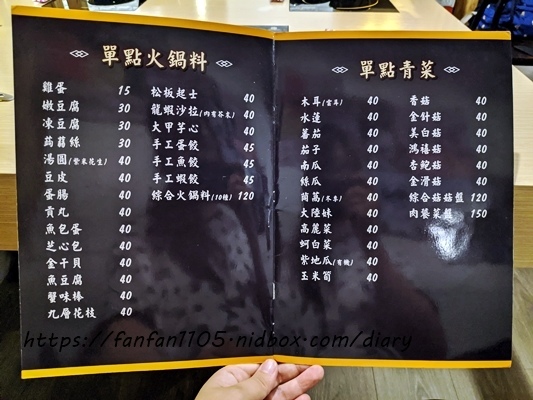 單點火鍋料
雞蛋 15
嫩豆腐 30
凍豆腐 30
蒟蒻絲 30
湯圓(紫米花生) 40
豆皮 40
蛋腸 40
貢丸 40
魚包蛋 40
芝心包 40
金干貝 40
魚豆腐 40
蟹味棒 40
九層花枝 40
松板起士 40
龍蝦沙拉(內有芥末) 40
大甲芋心 40
手工蛋餃 45
手工魚餃 45
手工蝦餃 45
綜合火鍋料(10種) 120
單點青菜
木耳(雲耳) 40
水蓮 40
蕃茄 40
茄子 40
南瓜 40
絲瓜 40
茼萵(冬季) 40
大陸妹 40
高麗菜 40
蚵白菜 40
紫地瓜(有機) 40
玉米筍 40
香菇 40
金針菇 40
美白菇 40
鴻禧菇 40
杏鮑菇 40
金滑菇 40
綜合菇菇盤 120
肉婆菜盤 150
https://fanfan1105.nidbox.com/diary